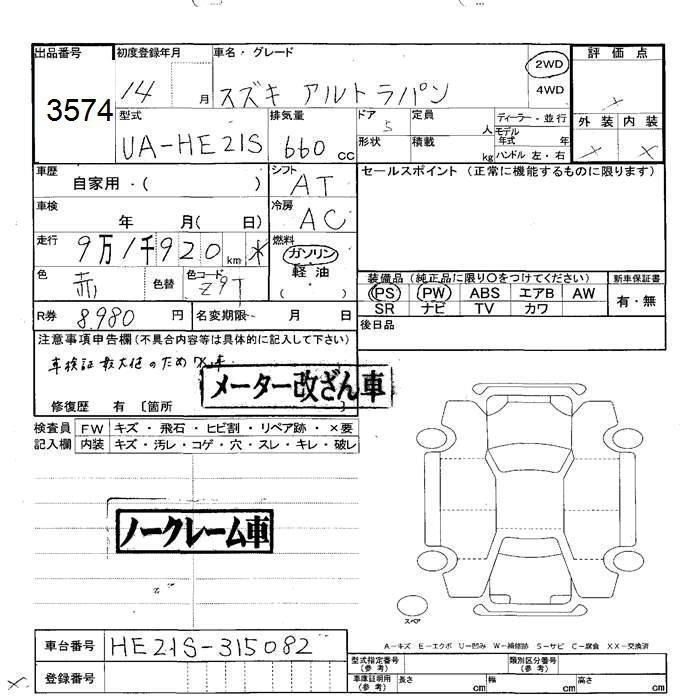 出品番号 初度登録年月 車名・グレード 2WD 評価点
3574 14 月 スズキ アルトラパン 4WD ×
型式 排気量 ドア 定員 ディーラー・並行 外装 内装
UA-HE21S 660 cc 5 人 モデル年式 年 × ×
形状 積載 kg ハンドル 左・右
車歴 シフト セールスポイント (正常に機能するものに限ります)
自家用・( ) AT
車検 冷房
年 月( 日) AC
走行 燃料
9万1千920 km * ガソリン
色 色替 色コード 軽油 装備品 (純正品に限り○をつけてください) 新車保証書
赤 Z9T ( ・ ) PS PW ABS エアB AW 有・無
R券 8,980 円 名変期限 月 日 SR ナビ TV カワ
後日品
注意事項申告欄(不具合内容等は具体的に記入して下さい)
車検証最大値のため*車
メーター改ざん車
修復歴 有 〔箇所 〕
検査員 FW キズ・飛石・ヒビ割・リペア跡・×要
記入欄 内装 キズ・汚レ・コゲ・穴・スレ・キレ・破レ
ノークレーム車
スペア
車台番号 HE21S-315082
A−キズ E−エクボ U−凹み W−補修跡 S−サビ C−腐食 XX−交換済
型式指定番号(参考) 類別区分番号(参考)
登録番号 車庫証明用(参考) 長さ cm 幅 cm 高さ cm
×